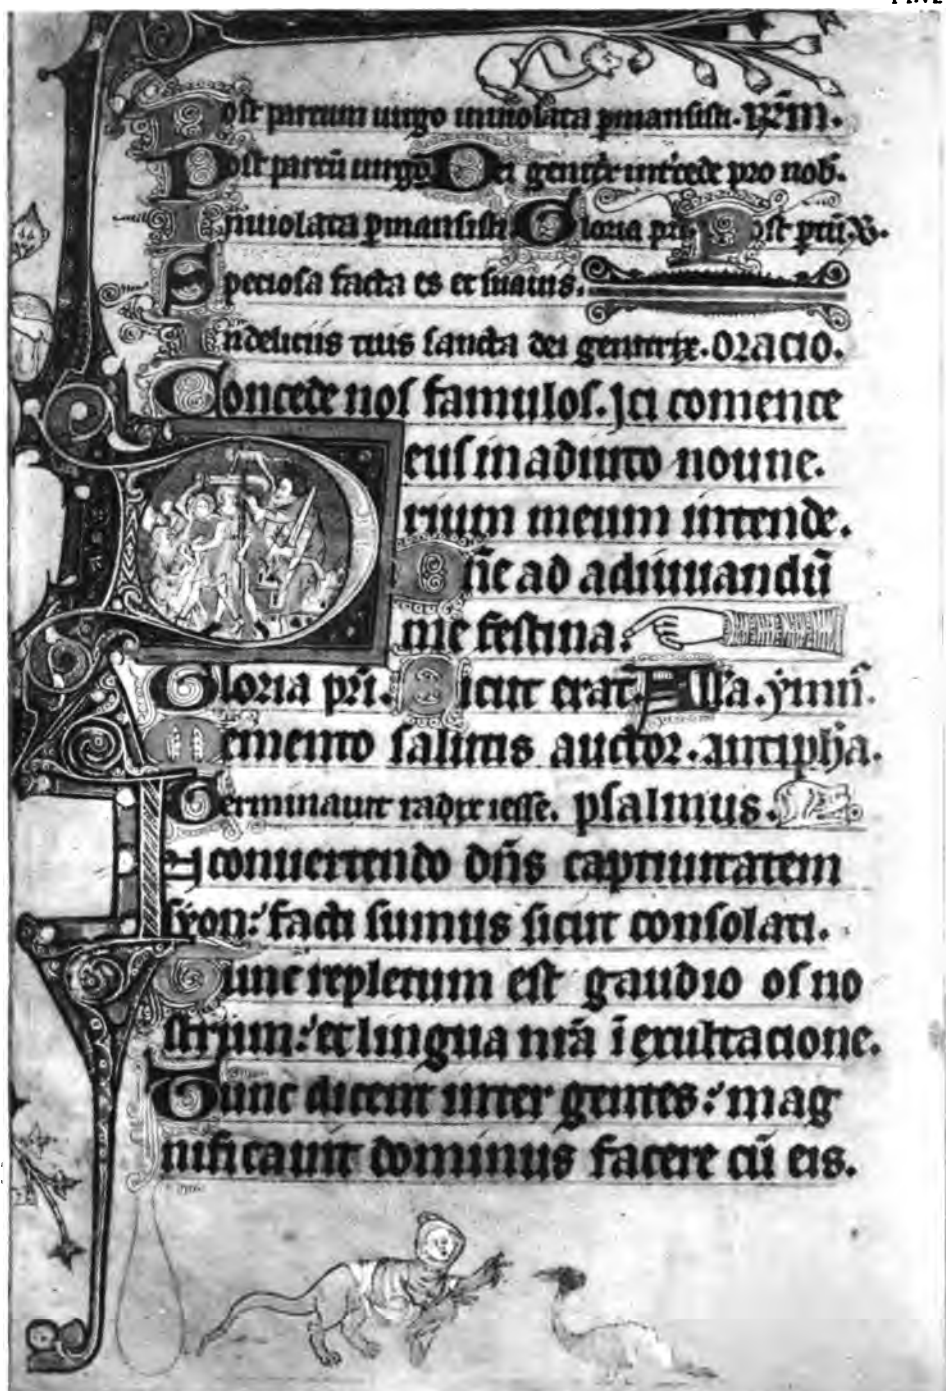 Post partum uirgo inuiolata pmansisti.
Post partū uirgo Dei genitͥx intͨede pro nob.
Inuiolata pmansisti Gloria pri. Post ptū. V.
Speciosa facta es et suauis.
In deliciis tuis sancta dei genitrix. oracio.
Concede nos famulos. Ici comence
Deus in adiuto noū ne.
rium meum intende.
Dn̄e ad adiuuandū
me festina.
Gloria pri. Sicut erat. All'a. ymn̄.
Memento salutis auctor. antiph̄a.
Germinauit radix iesse. psalmus.
In conuertendo dn̄s captiuitatem
syon: facti sumus sicut consolati.
Tunc repletum est gaudio os no
strum: et lingua nr̄a ī exultacione.
Tunc dicent inter gentes: mag
nificauit dominus facere cū eis.